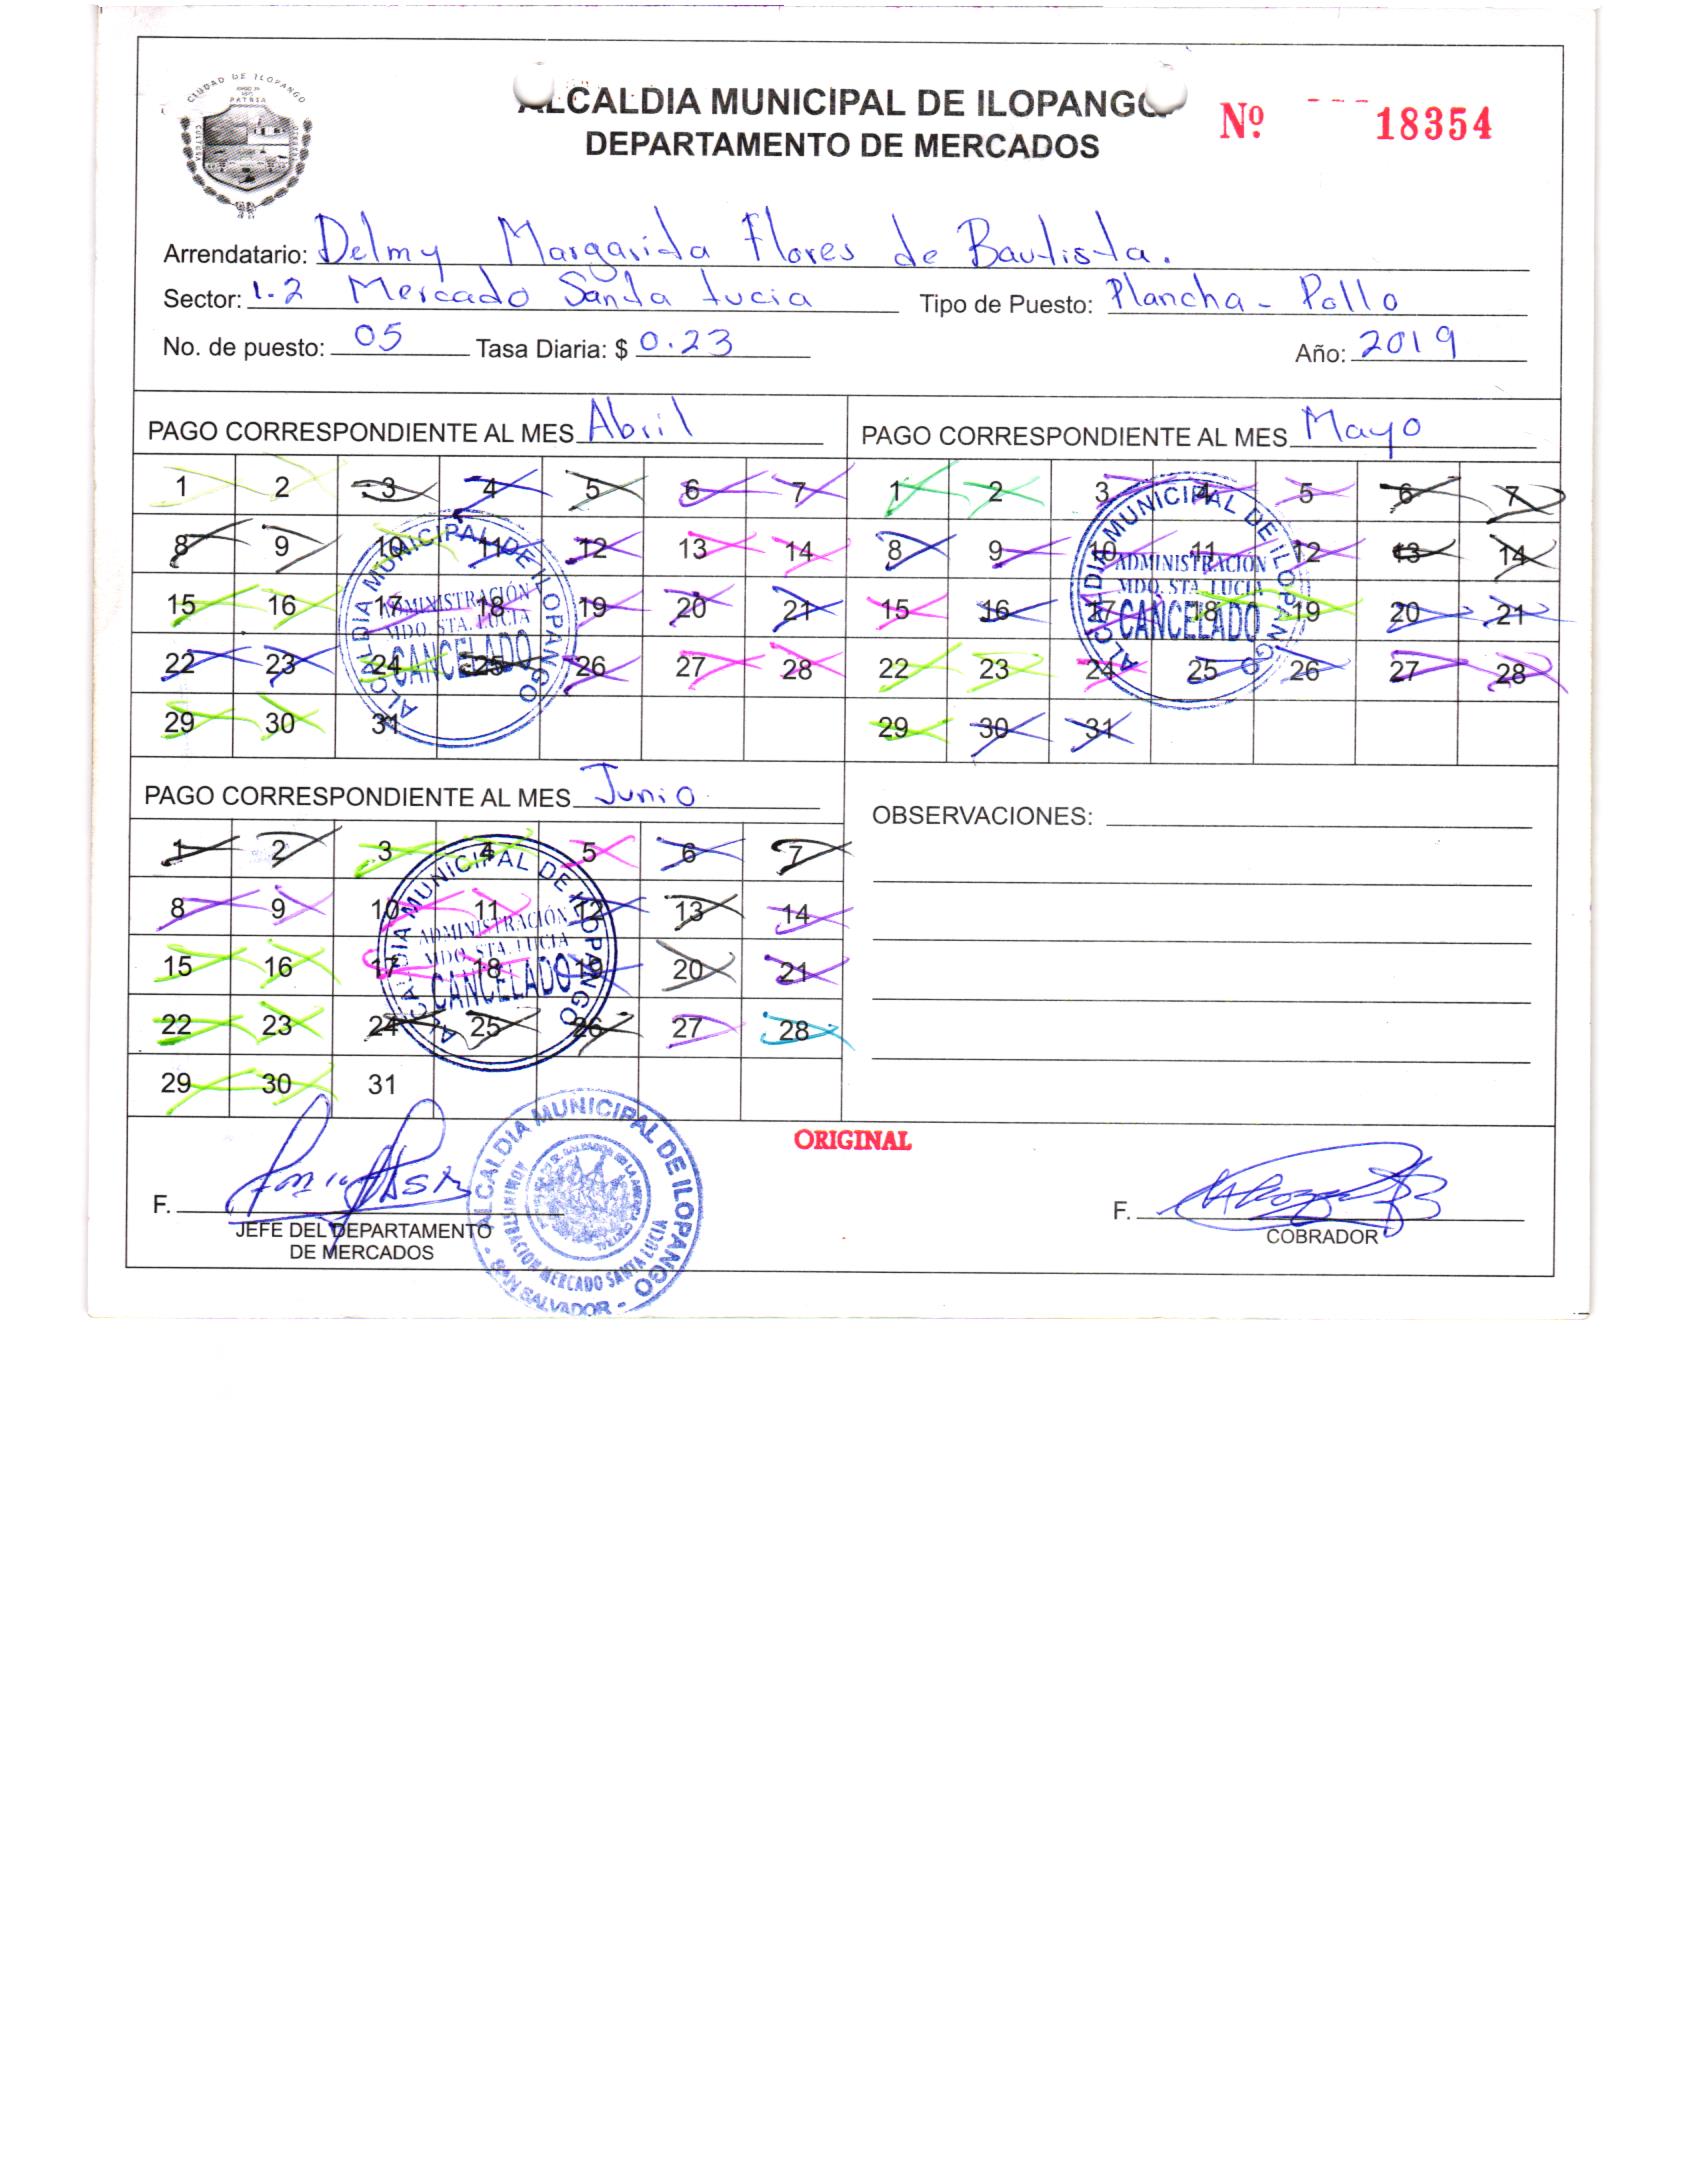 CIUDAD DE ILOPANGO
PATRIA
ALCALDIA MUNICIPAL DE ILOPANGO
DEPARTAMENTO DE MERCADOS
Nº 18354
Arrendatario: Delmy Margarida Flores de Bautista.
Sector: 1.2 Mercado Santa Lucia Tipo de Puesto: Plancha - Pollo
No. de puesto: 05 Tasa Diaria: $ 0.23 Año: 2019
PAGO CORRESPONDIENTE AL MES Abril
1 2 3 4 5 6 7
8 9 10 11 12 13 14
15 16 17 18 19 20 21
22 23 24 25 26 27 28
29 30 31
ALCALDIA MUNICIPAL DE ILOPANGO
ADMINISTRACIÓN
MDO. STA. LUCIA
CANCELADO
PAGO CORRESPONDIENTE AL MES Mayo
1 2 3 4 5 6 7
8 9 10 11 12 13 14
15 16 17 18 19 20 21
22 23 24 25 26 27 28
29 30 31
ALCALDIA MUNICIPAL DE ILOPANGO
ADMINISTRACIÓN
MDO. STA. LUCIA
CANCELADO
PAGO CORRESPONDIENTE AL MES Junio
1 2 3 4 5 6 7
8 9 10 11 12 13 14
15 16 17 18 19 20 21
22 23 24 25 26 27 28
29 30 31
ALCALDIA MUNICIPAL DE ILOPANGO
ADMINISTRACIÓN
MDO. STA. LUCIA
CANCELADO
OBSERVACIONES:
ORIGINAL
F.
JEFE DEL DEPARTAMENTO
DE MERCADOS
ALCALDIA MUNICIPAL DE ILOPANGO
ADMINISTRACION MERCADO SANTA LUCIA
- SAN SALVADOR -
F.
COBRADOR